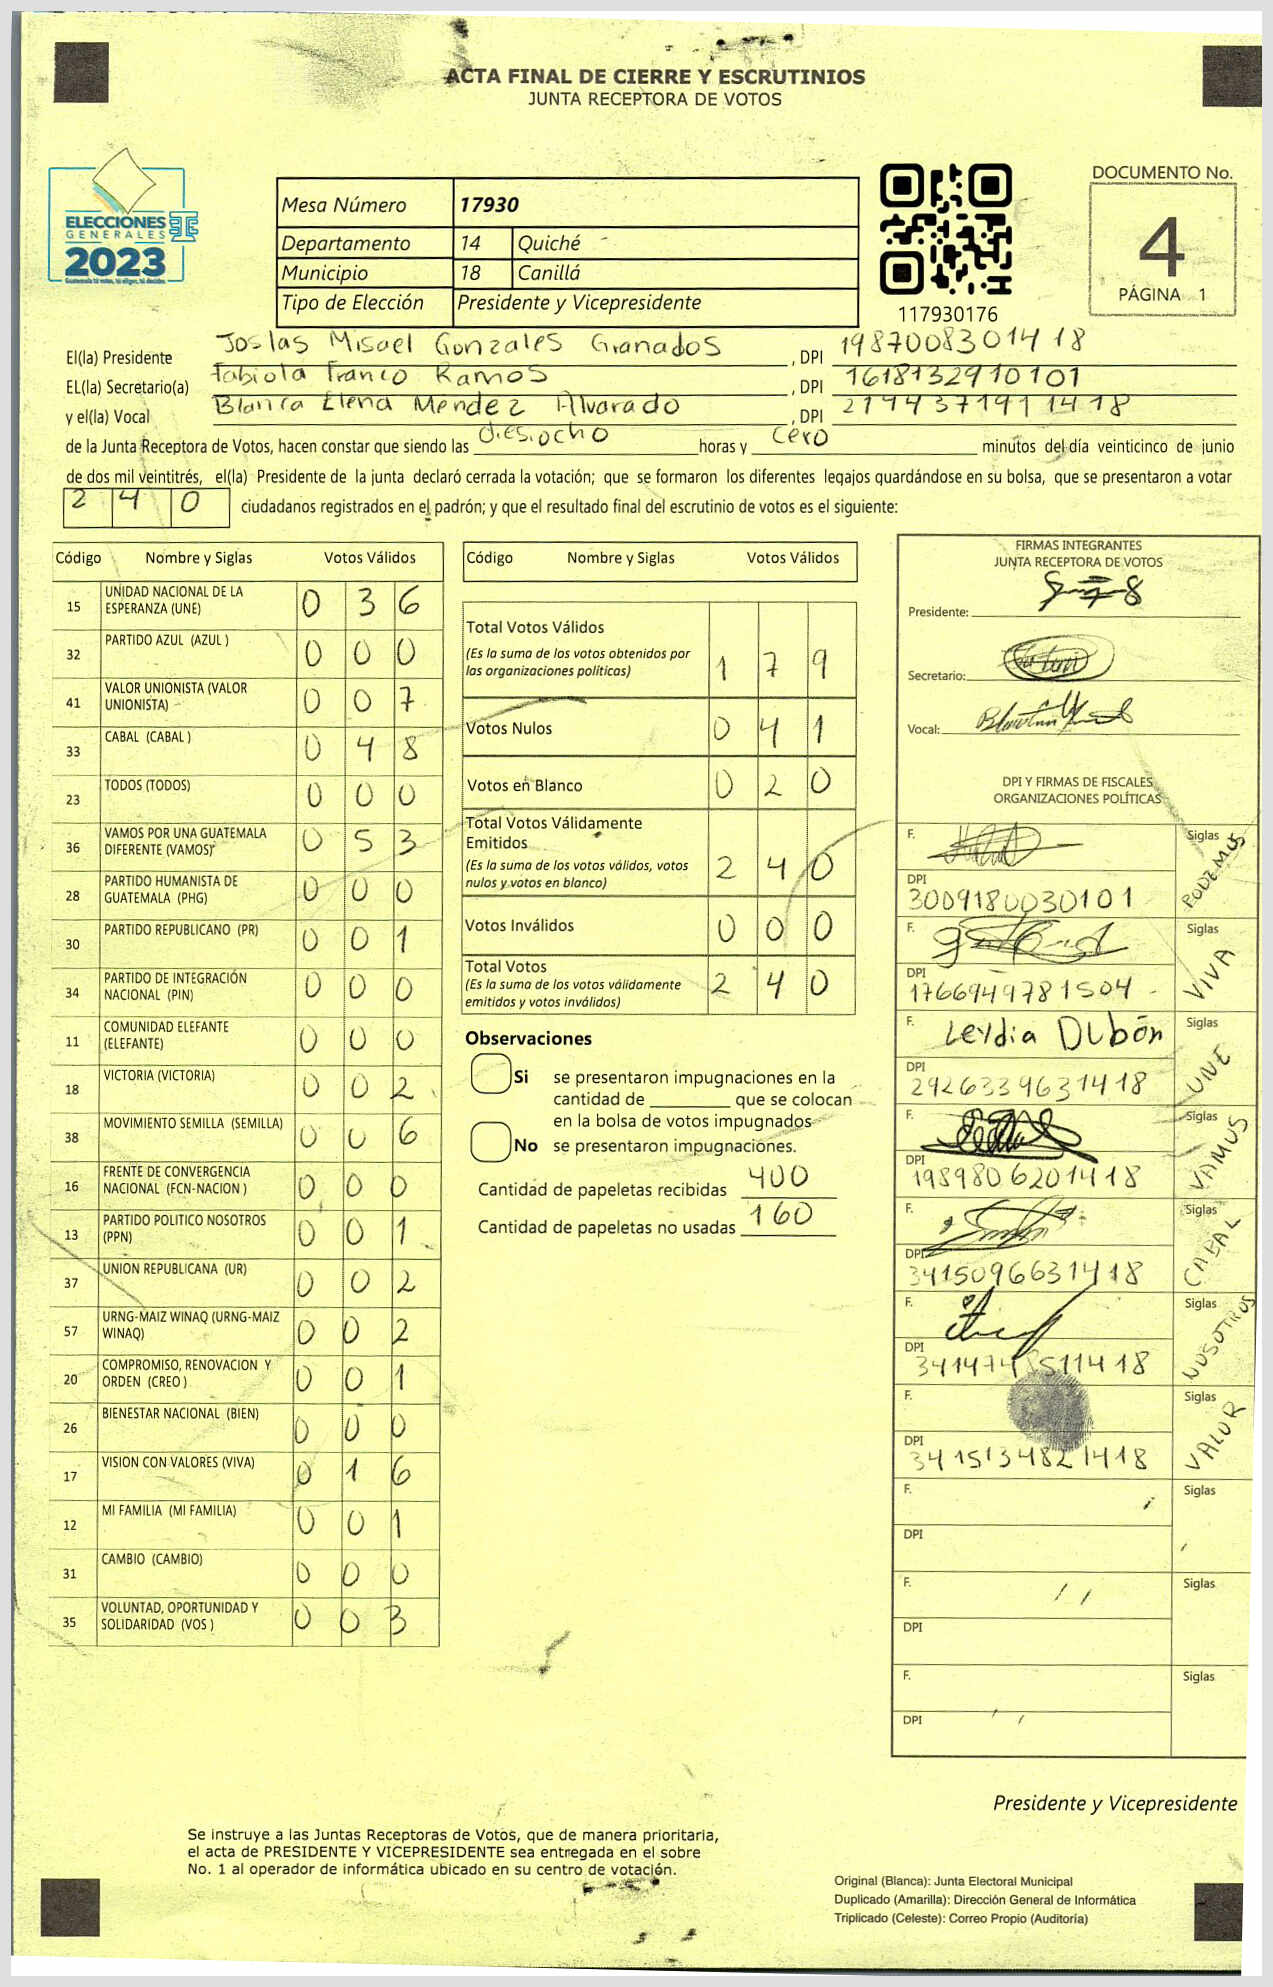 ACTA FINAL DE CIERRE Y ESCRUTINIOS
JUNTA RECEPTORA DE VOTOS
ELECCIONES
GENERALES
2023
Mesa Número 17930
Departamento 14 Quiché
Municipio 18 Canillá
Tipo de Elección Presidente y Vicepresidente
117930176
DOCUMENTO No.
4
PÁGINA 1
El(la) Presidente Josias Misael Gonzales Granados, DPI 1987008301418
EL(la) Secretario(a) Fabiola Franco Ramos, DPI 1618132910101
y el(la) Vocal Blanca Elena Mendez Alvarado, DPI 2194371911418
de la Junta Receptora de Votos, hacen constar que siendo las diesiocho horas y cero minutos del día veinticinco de junio
de dos mil veintitrés, el(la) Presidente de la junta declaró cerrada la votación; que se formaron los diferentes legajos guardándose en su bolsa, que se presentaron a votar
240 ciudadanos registrados en el padrón; y que el resultado final del escrutinio de votos es el siguiente:
Código Nombre y Siglas Votos Válidos
15 UNIDAD NACIONAL DE LA ESPERANZA (UNE) 0 3 6
32 PARTIDO AZUL (AZUL ) 0 0 0
41 VALOR UNIONISTA (VALOR UNIONISTA) 0 0 7
33 CABAL (CABAL ) 0 4 8
23 TODOS (TODOS) 0 0 0
36 VAMOS POR UNA GUATEMALA DIFERENTE (VAMOS) 0 5 3
28 PARTIDO HUMANISTA DE GUATEMALA (PHG) 0 0 0
30 PARTIDO REPUBLICANO (PR) 0 0 1
34 PARTIDO DE INTEGRACIÓN NACIONAL (PIN) 0 0 0
11 COMUNIDAD ELEFANTE (ELEFANTE) 0 0 0
18 VICTORIA (VICTORIA) 0 0 2
38 MOVIMIENTO SEMILLA (SEMILLA) 0 0 6
16 FRENTE DE CONVERGENCIA NACIONAL (FCN-NACION ) 0 0 0
13 PARTIDO POLITICO NOSOTROS (PPN) 0 0 1
37 UNION REPUBLICANA (UR) 0 0 2
57 URNG-MAIZ WINAQ (URNG-MAIZ WINAQ) 0 0 2
20 COMPROMISO, RENOVACION Y ORDEN (CREO ) 0 0 1
26 BIENESTAR NACIONAL (BIEN) 0 0 0
17 VISION CON VALORES (VIVA) 0 1 6
12 MI FAMILIA (MI FAMILIA) 0 0 1
31 CAMBIO (CAMBIO) 0 0 0
35 VOLUNTAD, OPORTUNIDAD Y SOLIDARIDAD (VOS ) 0 0 3
Código Nombre y Siglas Votos Válidos
Total Votos Válidos
(Es la suma de los votos obtenidos por las organizaciones políticas) 1 7 9
Votos Nulos 0 4 1
Votos en Blanco 0 2 0
Total Votos Válidamente Emitidos
(Es la suma de los votos válidos, votos nulos y votos en blanco) 2 4 0
Votos Inválidos 0 0 0
Total Votos
(Es la suma de los votos válidamente emitidos y votos inválidos) 2 4 0
Observaciones
Si se presentaron impugnaciones en la
cantidad de ________ que se colocan
en la bolsa de votos impugnados
No se presentaron impugnaciones.
Cantidad de papeletas recibidas 400
Cantidad de papeletas no usadas 160
FIRMAS INTEGRANTES
JUNTA RECEPTORA DE VOTOS
Presidente:
Secretario:
Vocal:
DPI Y FIRMAS DE FISCALES
ORGANIZACIONES POLÍTICAS
F. Siglas PODEMOS
DPI 3009180030101
F. Siglas VIVA
DPI 1766949781504
F. Leydia Dubón Siglas UNE
DPI 2926339631418
F. Siglas VAMOS
DPI 1989806201418
F. Siglas CABAL
DPI 3415096631418
F. Siglas NOSOTROS
DPI
F. Siglas VALOR
DPI 3415134821418
F. Siglas
DPI
F. Siglas
DPI
F. Siglas
DPI
Presidente y Vicepresidente
Se instruye a las Juntas Receptoras de Votos, que de manera prioritaria,
el acta de PRESIDENTE Y VICEPRESIDENTE sea entregada en el sobre
No. 1 al operador de informática ubicado en su centro de votación.
Original (Blanca): Junta Electoral Municipal
Duplicado (Amarilla): Dirección General de Informática
Triplicado (Celeste): Correo Propio (Auditoría)